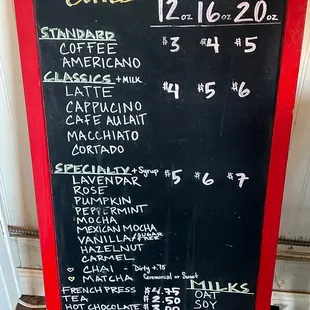 12oz 16oz 20oz
STANDARD
COFFEE $3 $4 $5
AMERICANO
CLASSICS + MILK
LATTE $4 $5 $6
CAPPUCINO
CAFE AULAIT
MACCHIATO
CORTADO
SPECIALTY + Syrup $5 $6 $7
LAVENDAR
ROSE
PUMPKIN
PEPPERMINT
MOCHA
MEXICAN MOCHA
VANILLA/SUGAR FREE
HAZELNUT
CARMEL
CHAI - Dirty +.75
MATCHA Ceremonial or Sweet
FRENCH PRESS $4.75
TEA $2.50
HOT CHOCOLATE $3.00
MILKS
OAT
SOY